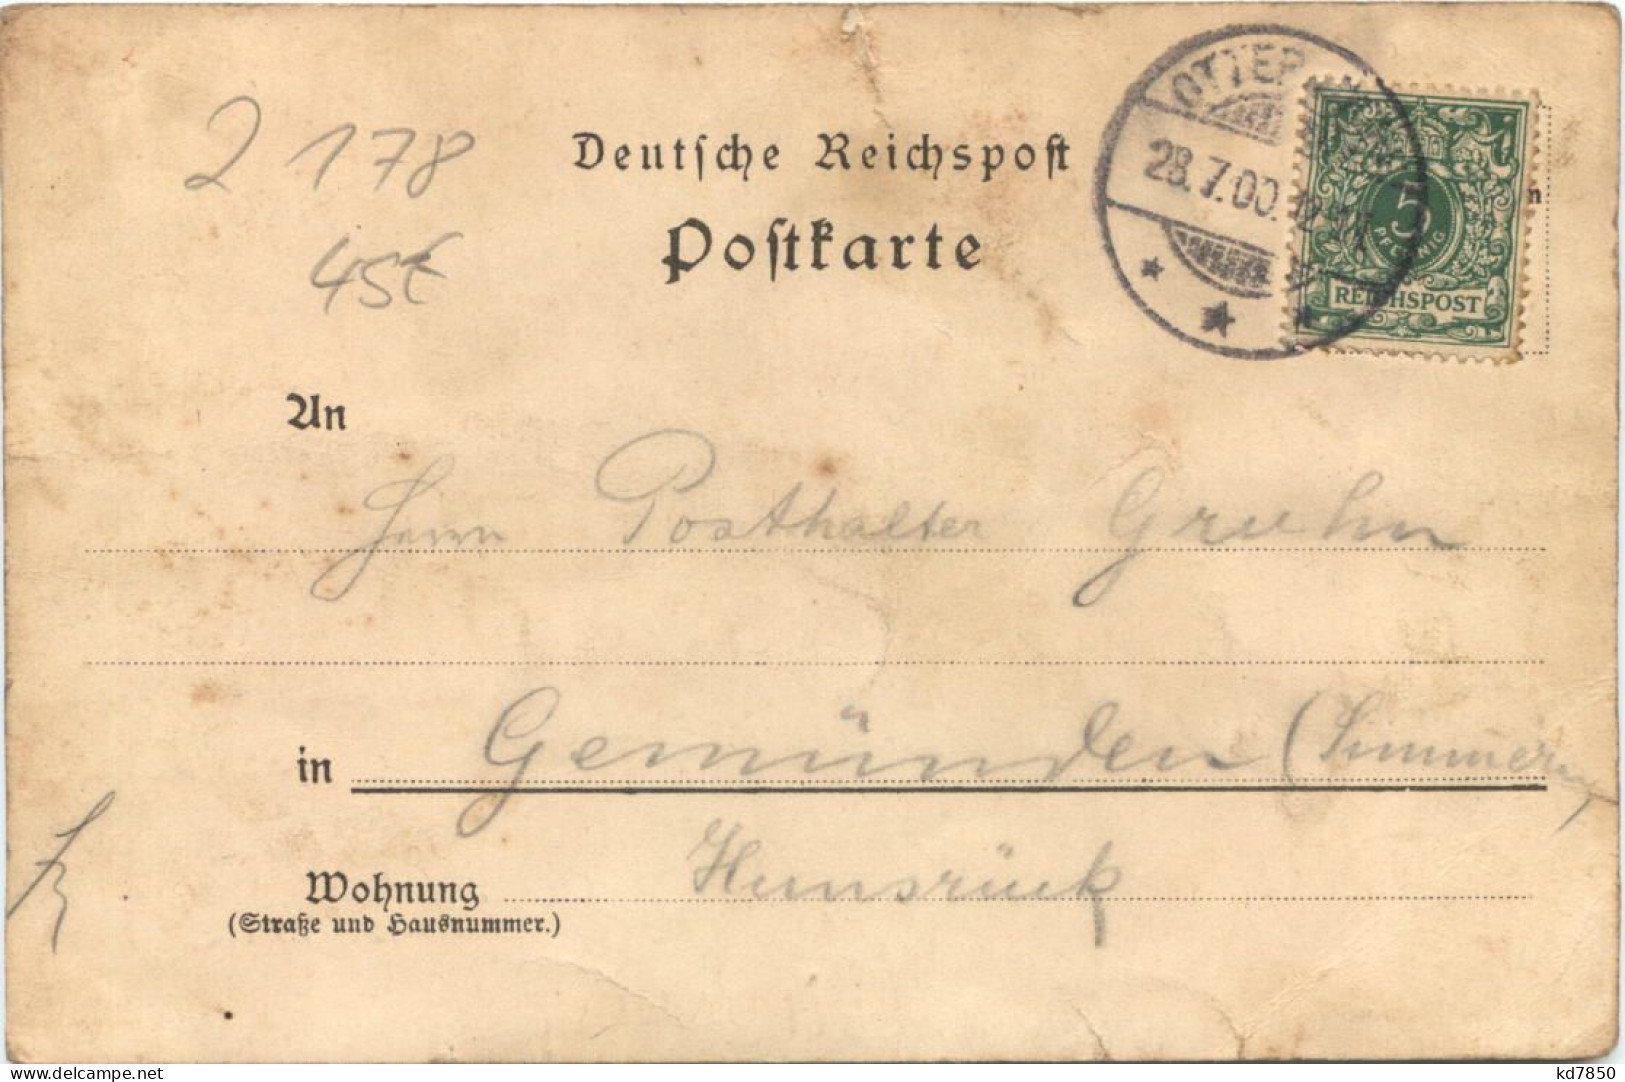 2 178
45€
Deutsche Reichspost
Postkarte
OTTER
28.7.00.
5
PFENNIG
REICHSPOST
An
Herrn Posthalter Gruhn
in Gemünden (Simmern)
Hunsrück
Wohnung
(Straße und Hausnummer.)
kd7850